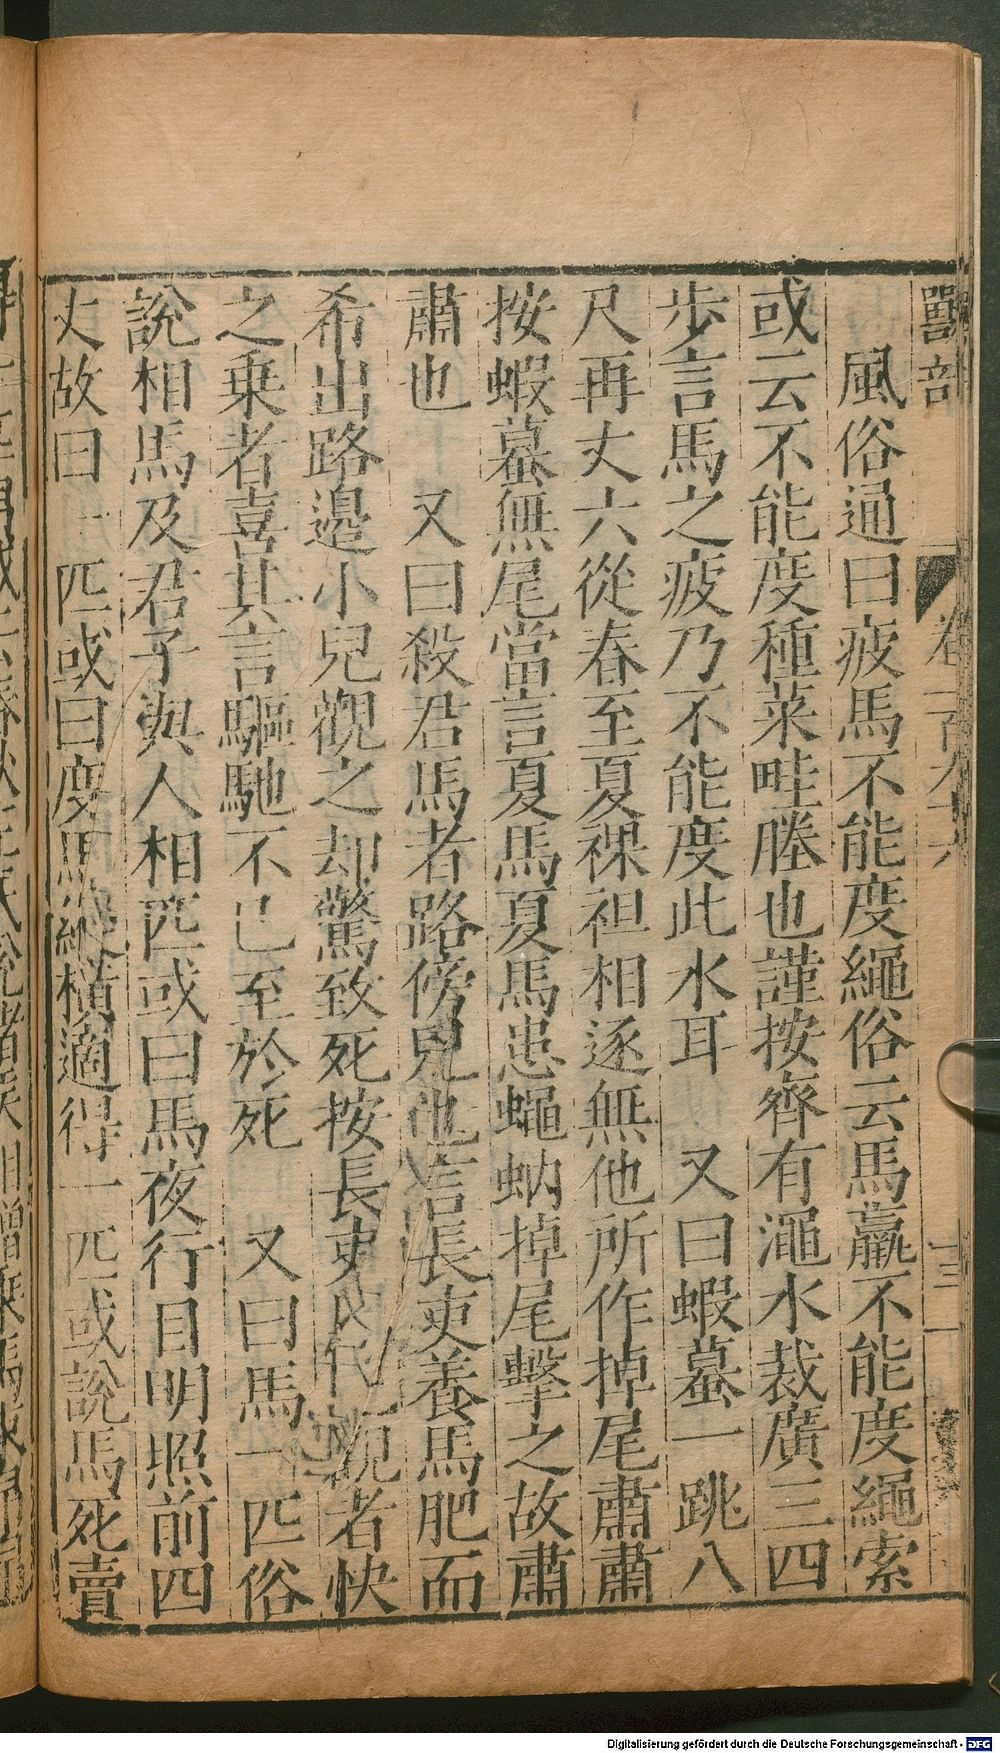 獸部 卷一百九十六 十三
風俗通曰疲馬不能度繩俗云馬羸不能度繩索
或云不能度種菜畦塍也謹按齊有澠水裁廣三四
步言馬之疲乃不能度此水耳 又曰蝦蟇一跳八
尺再丈六從春至夏裸袒相逐無他所作掉尾肅肅
按蝦蟇無尾當言夏馬夏馬患蠅蚋掉尾擊之故肅
肅也 又曰殺君馬者路傍兒也言長吏養馬肥而
希出路邊小兒觀之却驚致死按長吏 觀者快
之乗者喜其言驅馳不已至於死 又曰馬一匹俗
說相馬及君子與人相匹或曰馬夜行目明照前四
丈故曰一匹或曰度馬縱橫適得一匹或說馬死賣
Digitalisierung gefördert durch die Deutsche Forschungsgemeinschaft - DFG